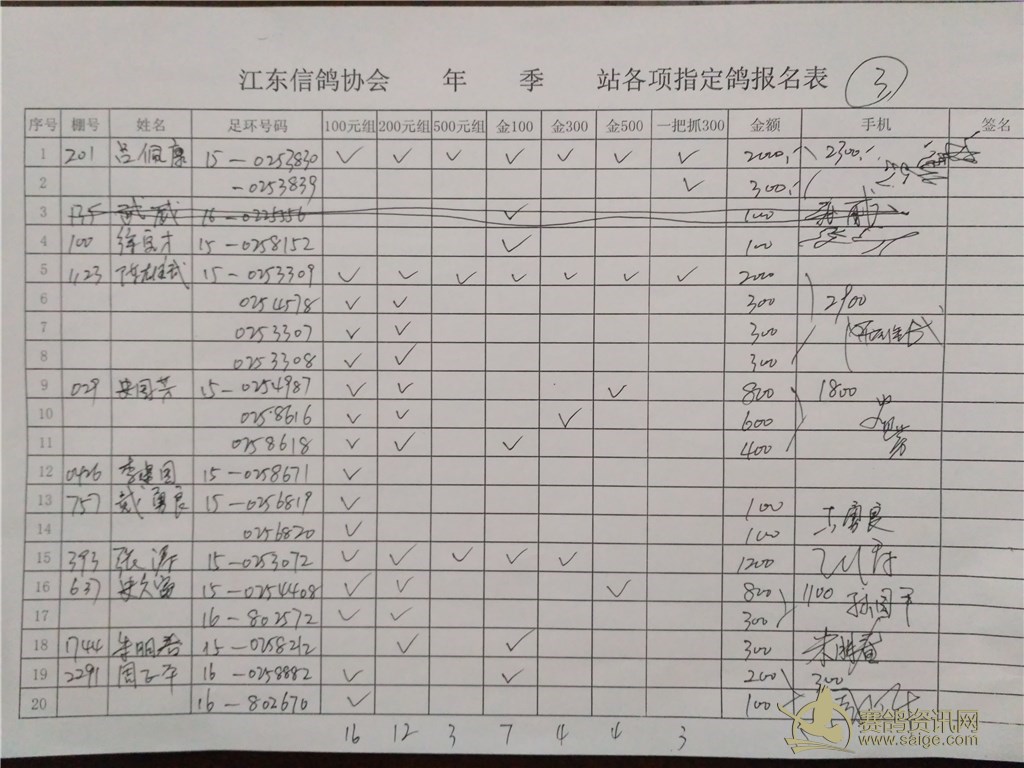 江东信鸽协会 年 季 站各项指定鸽报名表 3
序号 棚号 姓名 足环号码 100元组 200元组 500元组 金100 金300 金500 一把抓300 金额 手机 签名
1 201 吕佩康 15-0253830 ✓ ✓ ✓ ✓ ✓ ✓ ✓ 2000 2300
2 -0253839 ✓ 300
3 威 16-0225556 ✓ 100
4 100 徐良才 15-0258152 ✓ 100
5 1123 陈雄武 15-0253309 ✓ ✓ ✓ ✓ ✓ ✓ ✓ 2000
6 0254578 ✓ ✓ 300 2900
7 0253307 ✓ ✓ 300
8 0253308 ✓ ✓ 300
9 029 国芳 15-0254987 ✓ ✓ ✓ 800 1800
10 0258616 ✓ ✓ ✓ 600
11 0258618 ✓ ✓ ✓ 400
12 0426 李建国 15-0258671 ✓
13 757 戴勇良 15-0256819 ✓ 100
14 0256820 ✓ 100
15 393 张涛 15-0253072 ✓ ✓ ✓ ✓ ✓ 1200
16 637 15-0254408 ✓ ✓ ✓ 800 1100
17 16-802572 ✓ ✓ 300
18 1744 朱明春 15-0258212 ✓ ✓ 300 朱明春
19 2291 周子平 16-0258882 ✓ ✓ 200 300
20 16-802670 ✓ 100
16 12 3 7 4 4 3
赛鸽资讯网
www.saige.com